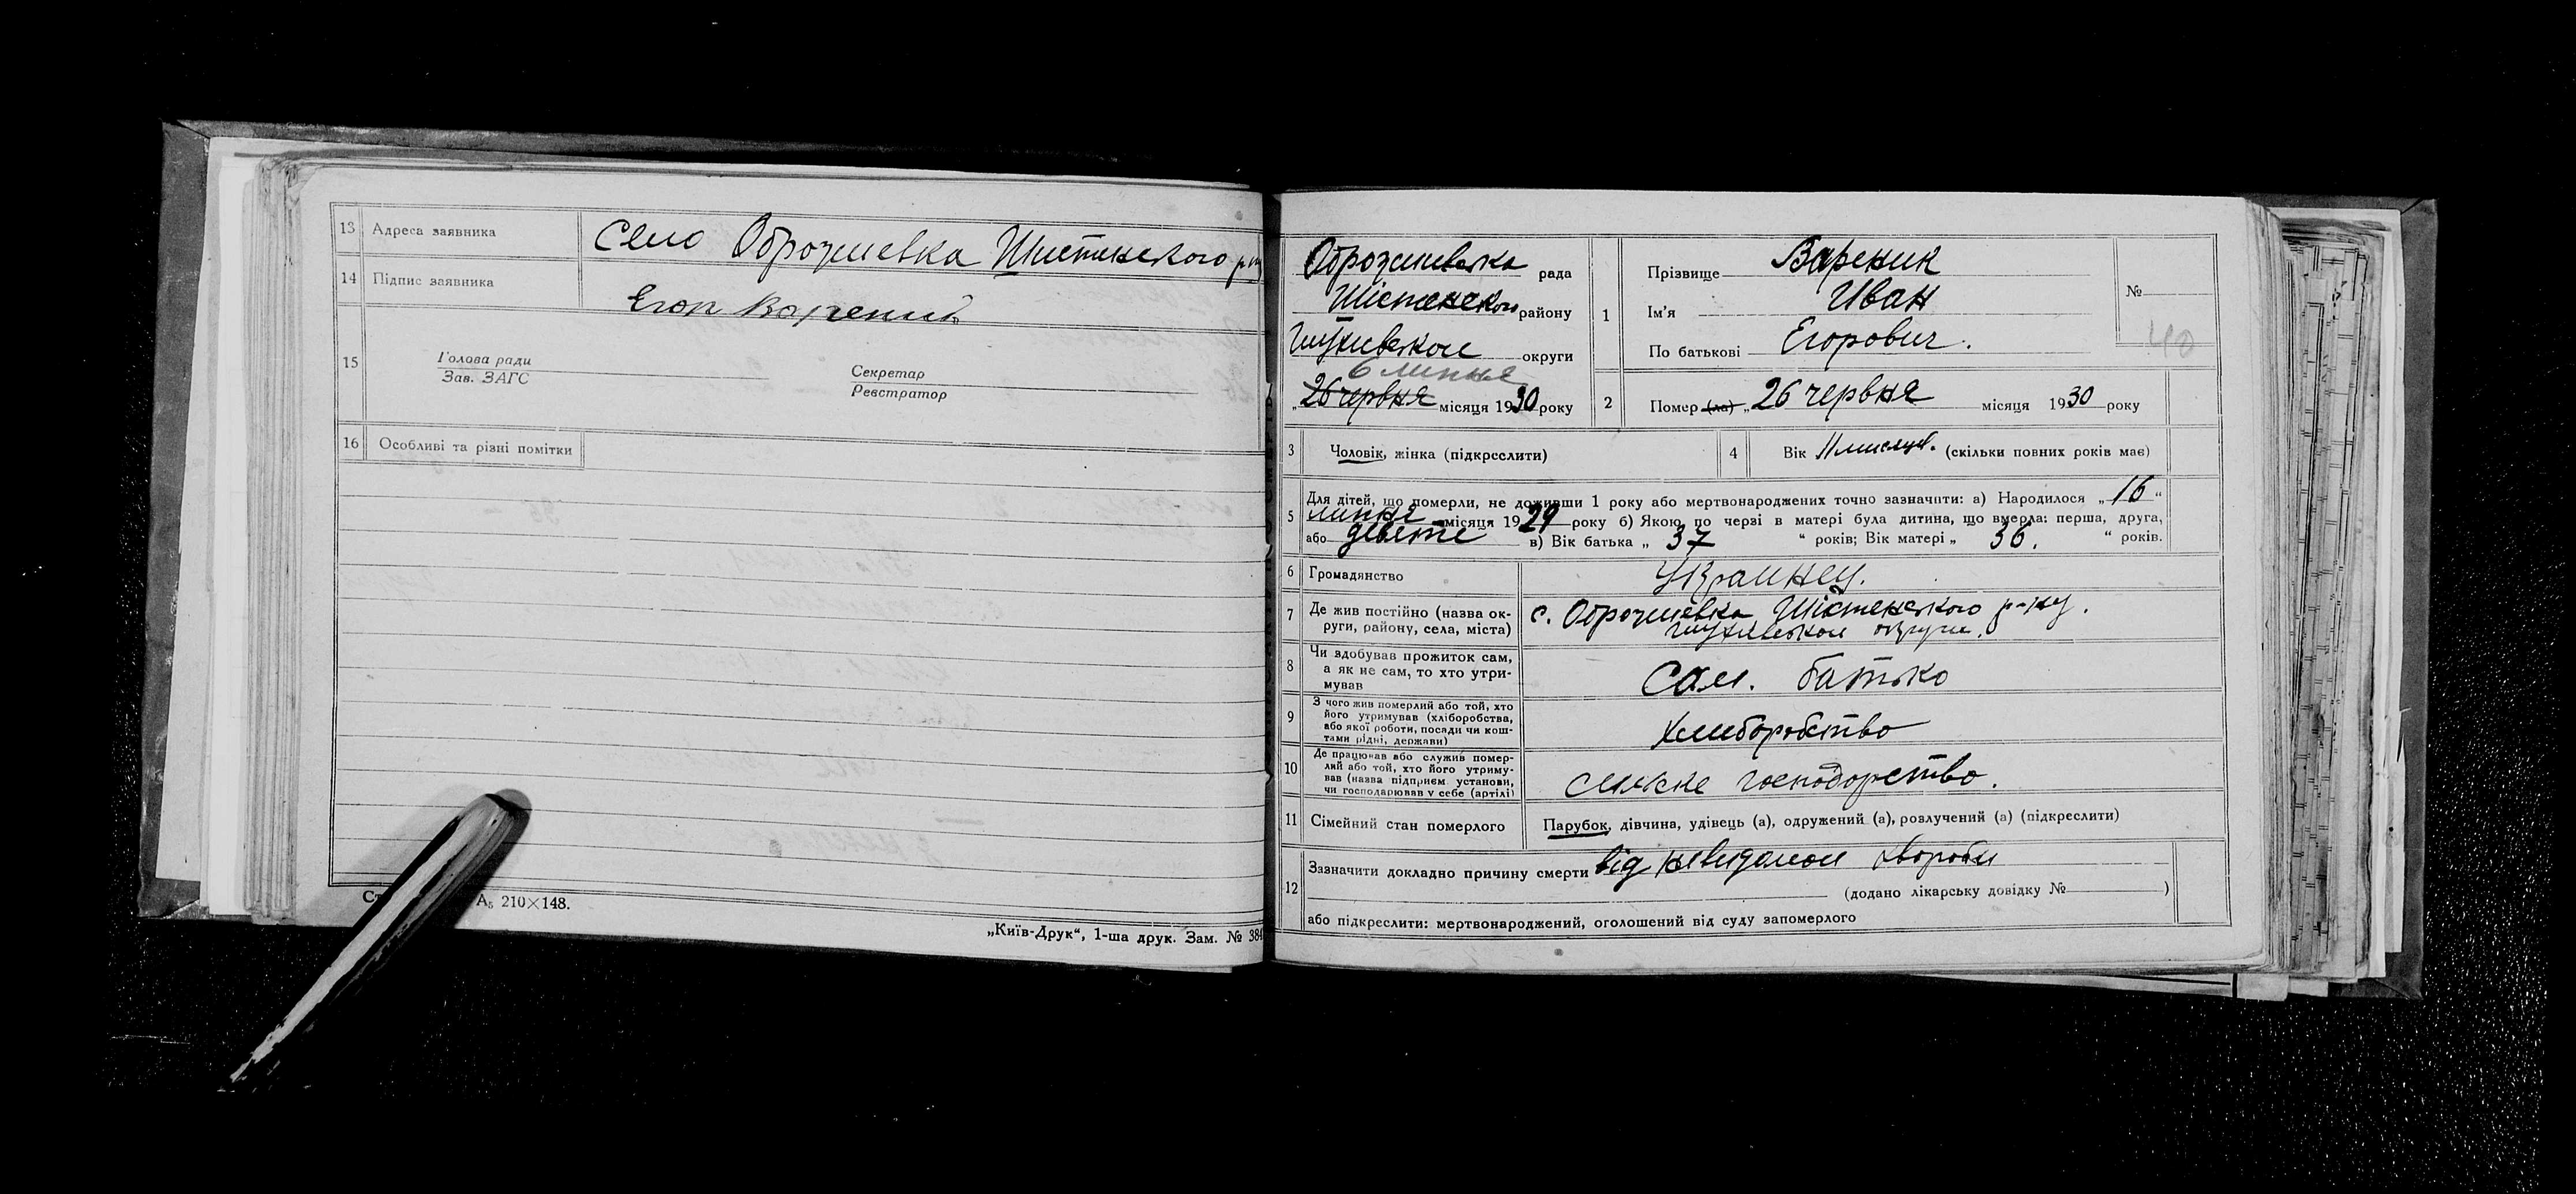 13 Адреса заявника Село Оброжиевка Шистинского р-ну
14 Підпис заявника Егор Вареник
15 Голова ради
Зав. ЗАГС
Секретар
Реєстратор
16 Особливі та різні помітки
А₅ 210×148.
„Київ-Друк“, 1-ша друк. Зам. № 384
Оброжиевска рада
Шістенского району
Глухивськои округи
6 липня
„26 червня місяця 1930 року
1 Прізвище Вареник
Ім'я Иван
По батькові Егорович.
№
40
2 Помер (ла) „26 червня місяця 1930 року
3 Чоловік, жінка (підкреслити)
4 Вік 11 мисяцев. (скільки повних років має)
5 Для дітей, що померли, не доживши 1 року або мертвонароджених точно зазначити: а) Народилося „16“
липня місяця 1929 року б) Якою по черзі в матері була дитина, що вмерла: перша, друга,
або девяте в) Вік батька „ 37 “ років; Вік матері „ 36. “ років.
6 Громадянство Украинец.
7 Де жив постійно (назва округи, району, села, міста) с. Оброжиевка Шістенского р-ну.
глухивськои округи.
8 Чи здобував прожиток сам,
а як не сам, то хто утримував
Сам. батько
9 З чого жив померлий або той, хто
його утримував (хліборобства,
або якої роботи, посади чи коштами рідні, держави)
хлиборобство
10 Де працював або служив померлий або той, хто його утримував (назва підприєм. установи,
чи господарював у себе (артілі)
силське господорство.
11 Сімейний стан померлого Парубок, дівчина, удівець (а), одружений (а), розлучений (а) (підкреслити)
12 Зазначити докладно причину смерти від невидомои хвороби
(додано лікарську довідку № )
або підкреслити: мертвонароджений, оголошений від суду запомерлого